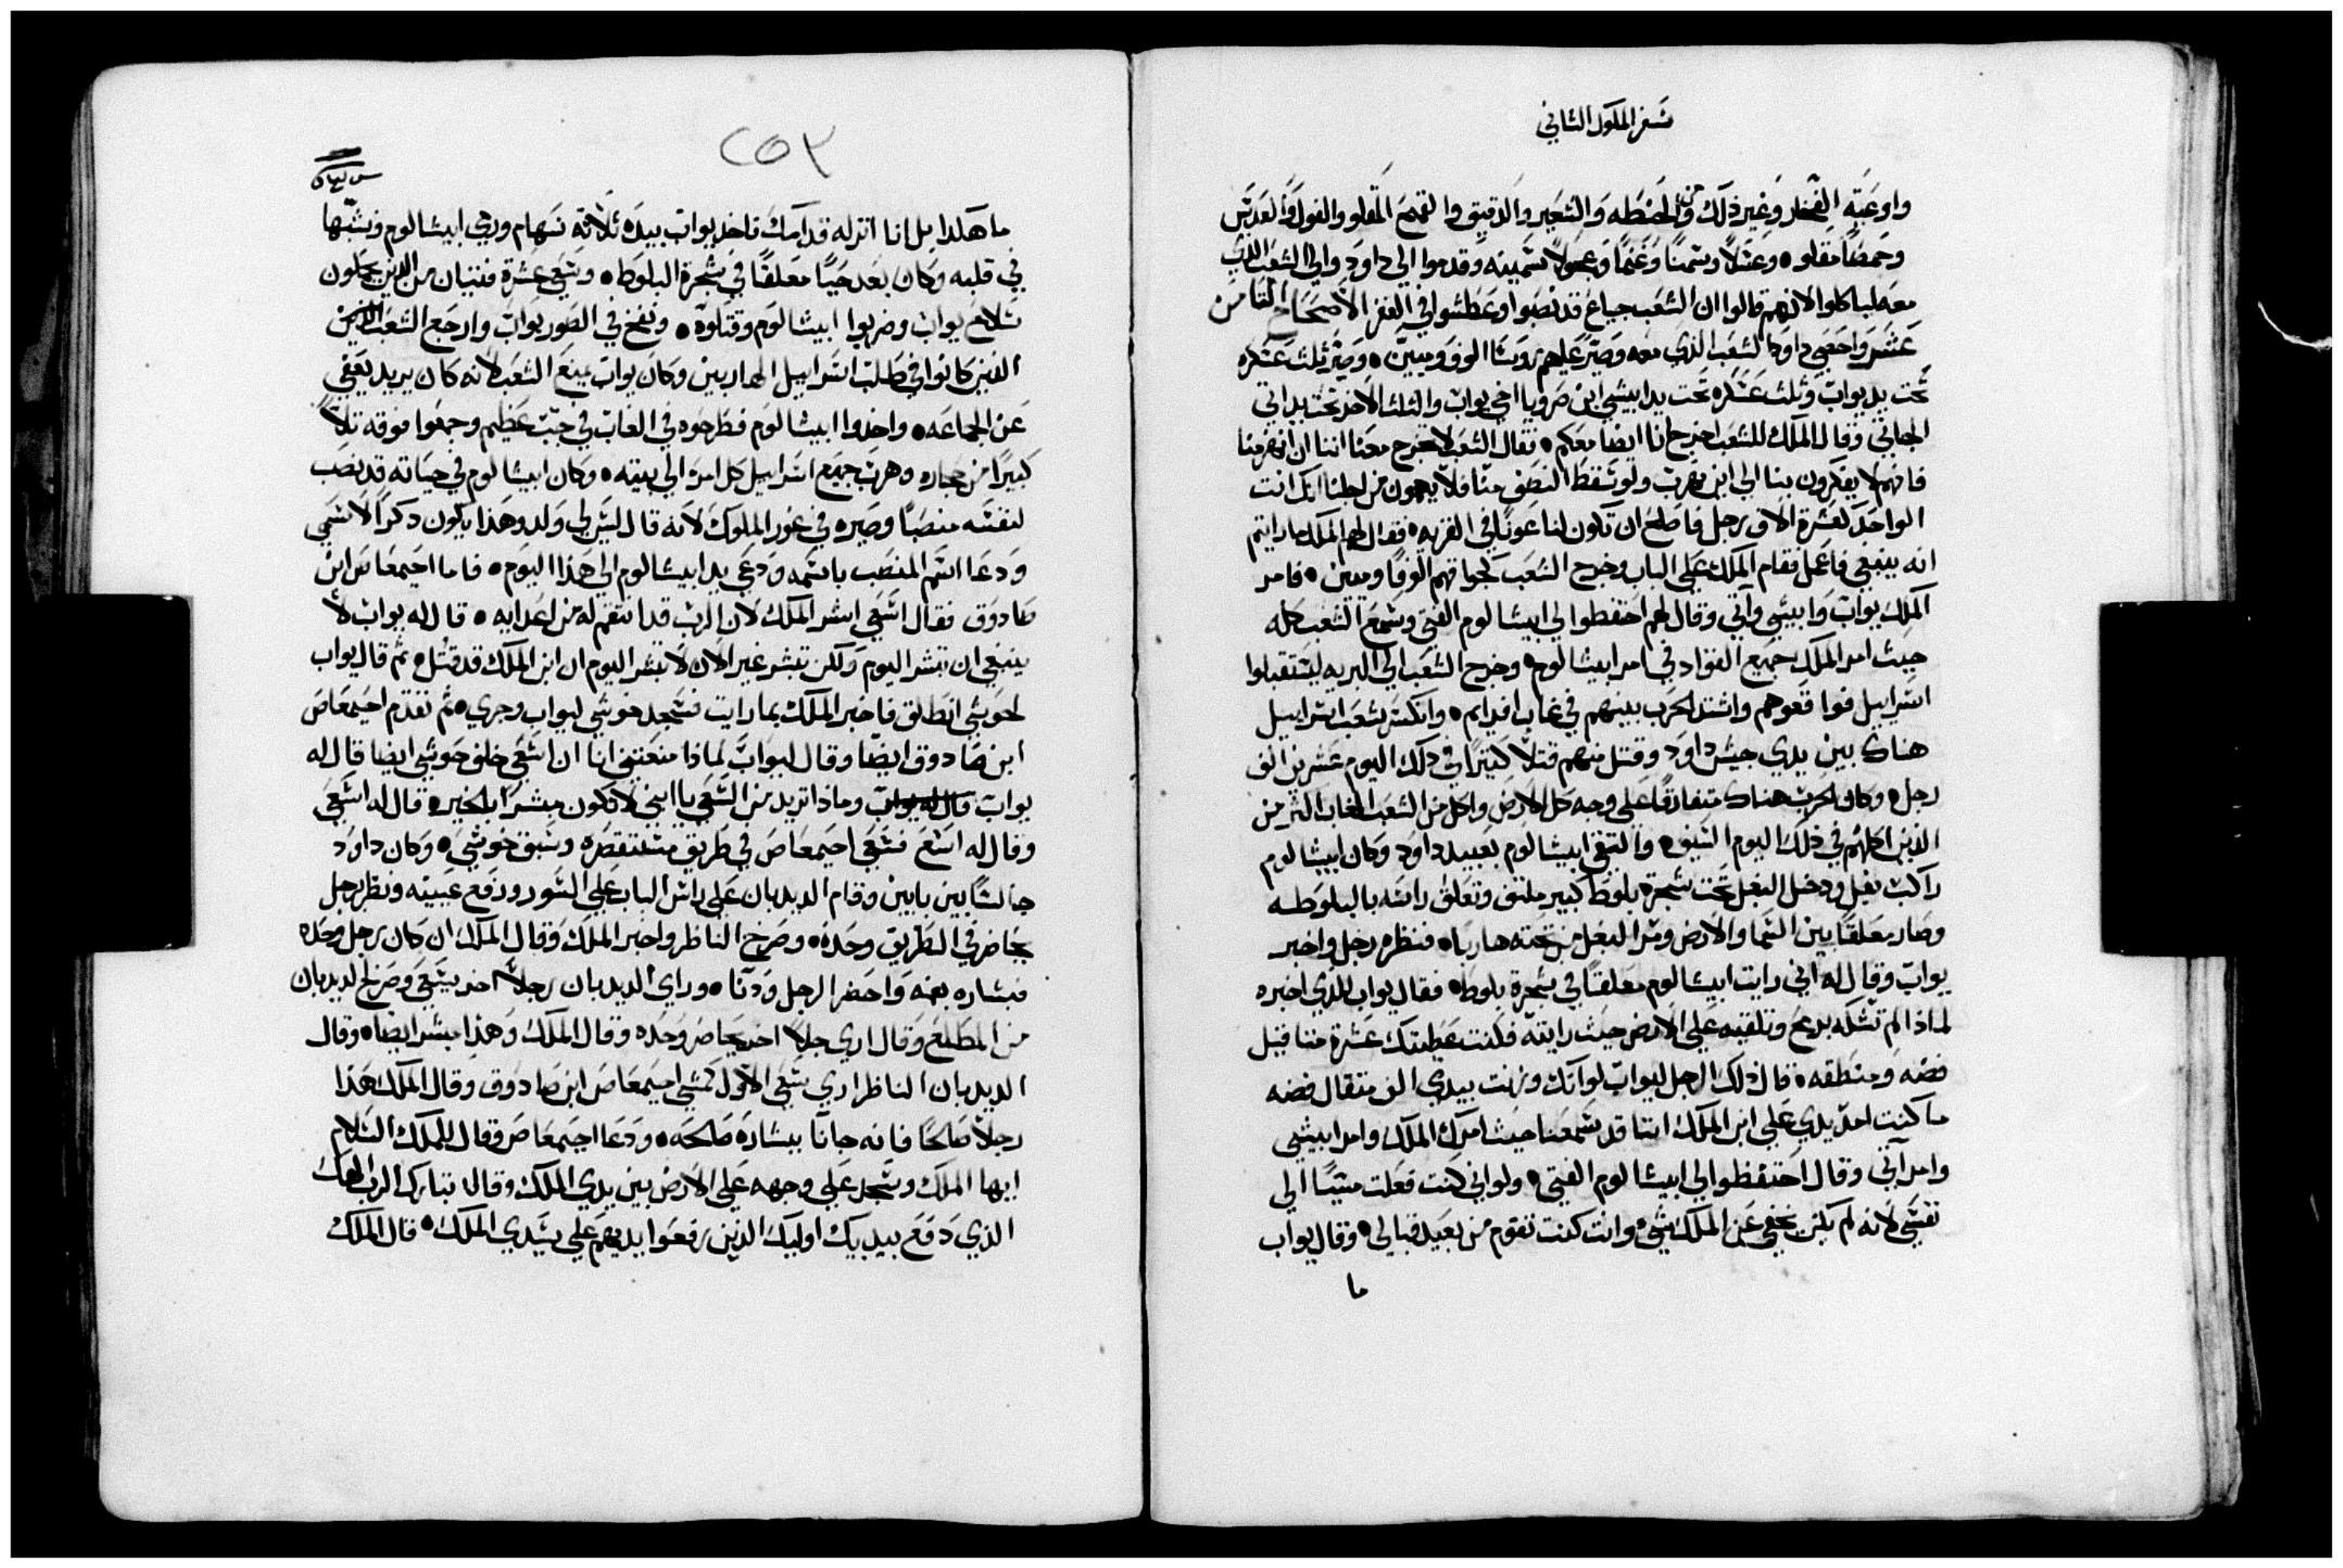 سفر الملوك الثاني
واوعية الفخار وغير ذلك من الحنطه والشعير والدقيق والقمح المقلو والفول والعدس
وحمصًا مقلو ٥ وعسلاً وسمنًا وغنمًا وعجولاً سمينه وقدموا الي داود والي الشعب الذي
معه لياكلوا لانهم قالوا ان الشعب جياع قد نصبوا وعطشوا في القفر الاصحاح الثامن
عشر واحصي داود الشعب الذي معه وصير عليهم روسا الوف وميين ٥ وصير ثلث عسكره
تحت يد يواب وثلث عسكره تحت يد ابيشي ابن صرويا اخي يواب والثلث الاخر تحت يد اتي
الجاتي وقال الملك للشعب اخرج انا ايضا معكم ٥ فقال الشعب لا تخرج معنا اننا ان انهزمنا
فانهم لا يفكرون بنا الي اين نهرب ولو سقط النصف منا فلا يهمون من اجلنا انك انت
الواحد لعشرة الاف رجل فاصلح ان تكون لنا عونًا في القريه ٥ فقال لهم الملك ما رايتم
انه ينبغي فاعمل فقام الملك علي الباب وخرج الشعب كجماعتهم الوفًا وميين ٥ فامر
الملك يواب وابيشي واتي وقال لهم احتفظوا لي ابيشالوم الفتي وسمع الشعب كله
حيث امر الملك جميع القواد في امر ابيشالوم ٥ وخرج الشعب الي البريه ليستقبلوا
اسراييل فواقعوهم واشتد الحرب بينهم في غاب افرايم ٥ وانكسر شعب اسراييل
هناك بين يدي جيش داود وقتل منهم قتلاً كثيرًا في ذلك اليوم عشرين الف
رجل ٥ وكان الحرب هناك متفارقًا علي وجه كل الارض واكل من الشعب الغاب اكثر من
الذين اكلهم في ذلك اليوم السيف ٥ والتقي ابيشالوم بعبيد داود وكان ابيشالوم
راكب بغل ودخل البغل تحت شجرة بلوط كبير ملتف وتعلق راسه بالبلوطه
وصار معلقًا بين السما والارض ومر البغل من تحته هاربا ٥ فنظره رجل واخبر
يواب وقال له اني رايت ابيشالوم معلقًا في شجرة بلوط ٥ فقال يواب للذي اخبره
لماذا لم تشكه برمح وتلقيه علي الارض حيث رايته فكنت عطيتك عشرة مثاقيل
فضه ومنطقه ٥ قال ذلك الرجل ليواب لو انك وزنت بيدي الف متقال فضه
ما كنت امد يدي علي ابن الملك اننا قد سمعنا حيث امرك الملك وامر ابيشي
وامر اتي وقال احتفظوا لي ابيشالوم الفتي ٥ ولو اني كنت فعلت شيًا الي
نفسي لانه لم يكن يخفي عن الملك شي وانت كنت تقوم من بعيد قبالي ٥ وقال يواب
ما
٢٥٣
ما هكذا بل انا انزله قدامك فاخذ يواب بيده ثلاثة سهام ورمي ابيشالوم ونشبها
في قلبه وكان بعد حيًا معلقًا في شجرة البلوط ٥ وسعي عشرة فتيان من الذين يحملون
سلاح يواب وضربوا ابيشالوم وقتلوه ٥ ونفخ في الصور يواب وارجع الشعب
الذين كانوا في طلب اسراييل الهاربين وكان يواب يمنع الشعب لانه كان يريد يعفي
عن الجماعه ٥ واخذوا ابيشالوم فطرحوه في الغاب في جب عظيم وجمعوا فوقه تلاً
كبيرًا من حجاره وهرب جميع اسراييل كل امره الي بيته ٥ وكان ابيشالوم في حياته قد نصب
لنفسه منصبًا وصيره في غور الملوك لانه قال ليس لي ولد وهذا يكون ذكرًا لاسمي
ودعا اسم المنصب باسمه ودعي يد ابيشالوم الي هذا اليوم ٥ فاما احيمعاص ابن
صادوق فقال اسعي ابشر الملك لان الرب قد انتقم له من اعدايه ٥ قال له يواب لا
ينبغي ان تبشر اليوم ولكن تبشر غير الان لا تبشر اليوم ان ابن الملك قد قتل ٥ ثم قال يواب
لحوشي انطلق فاخبر الملك بما رايت فسجد حوشي ليواب وجري ٥ ثم تقدم احيمعاص
ابن صادوق ايضًا وقال ليواب لماذا منعتني انا ان اسعي خلف حوشي ايضا قال له
يواب قال له يواب وماذا تريد من السعي يا ابني لا تكون مبشرًا بالخير ٥ قال له اسعي
وقال له اسع فسعي احيمعاص في طريق مستقطره وسبق حوشي ٥ وكان داود
جالسًا بين بابين وقام الديدبان علي راس الباب علي السور ورفع عينيه ونظر رجل
يحاضر في الطريق وحده ٥ وصرخ الناظر واخبر الملك وقال الملك ان كان رجل وحده
فبشاره بفمه واحضر الرجل ودنا ٥ وراي الديدبان رجلاً اخر يسعي وصرخ الديدبان
من المطلع وقال اري رجلا اخر يحاضر وحده وقال الملك وهذا مبشر ايضا ٥ وقال
الديدبان الناظر اري سعي الاول كسعي احيمعاص ابن صادوق وقال الملك هذا
رجلاً صالحًا فانه جانا ببشاره صالحه ٥ ودعا احيمعاص وقال للملك السلام
ايها الملك وسجد علي وجهه علي الارض بين يدي الملك وقال تبارك الرب الهك
الذي دفع بيديك اوليك الذين رفعوا يديهم علي سيدي الملك ٥ قال الملك